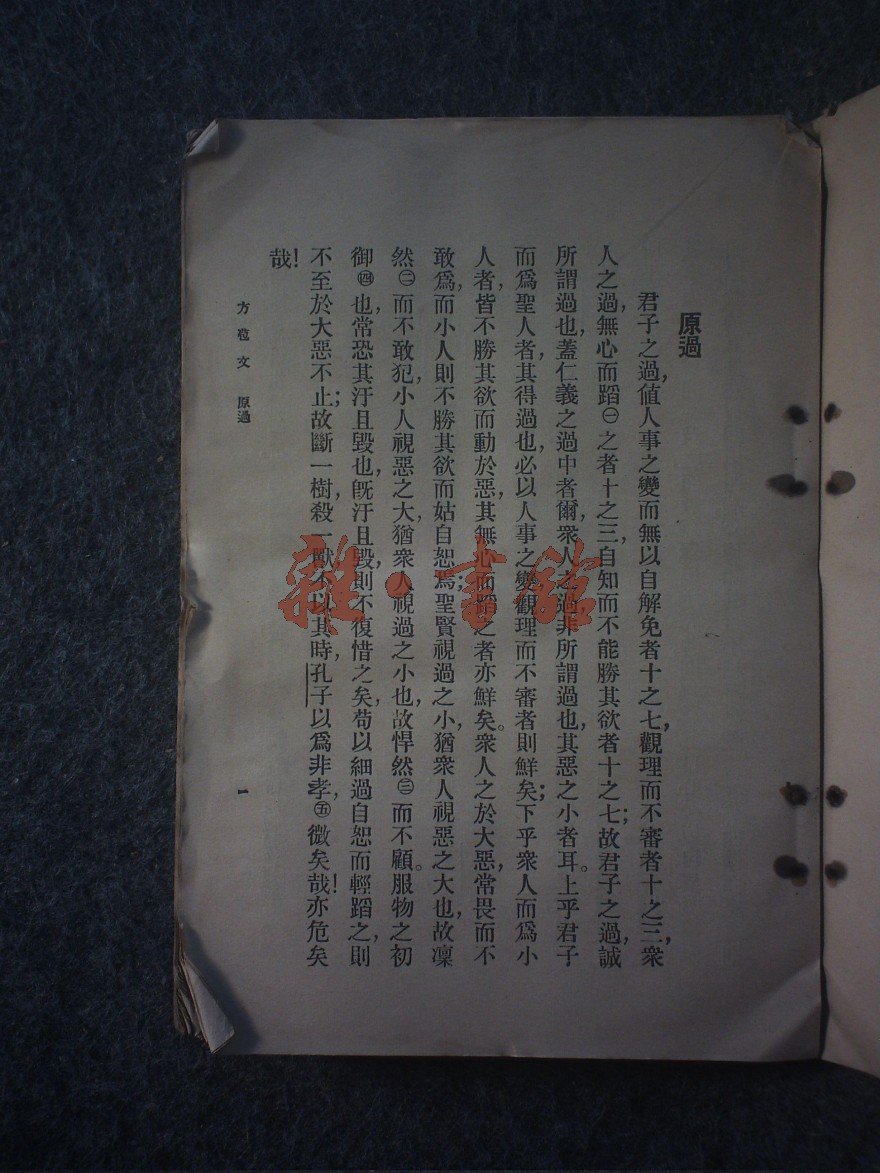 原過
君子之過，値人事之變而無以自解免者十之七，觀理而不審者十之三，衆
人之過，無心而蹈㊀之者十之三，自知而不能勝其欲者十之七；故君子之過，誠
所謂過也，蓋仁義之過中者爾，衆人之過，非所謂過也，其惡之小者耳。上乎君子
而爲聖人者，其得過也，必以人事之變，觀理而不審者則鮮矣；下乎衆人而爲小
人者，皆不勝其欲而動於惡，其無心而蹈之者亦鮮矣。衆人之於大惡，常畏而不
敢爲，而小人則不勝其欲而姑自恕焉；聖賢視過之小，猶衆人視惡之大也，故凜
然㊁而不敢犯，小人視惡之大，猶衆人視過之小也，故悍然㊂而不顧。服物之初
御㊃也，常恐其汙且毀也，旣汙且毀，則不復惜之矣，苟以細過自恕而輕蹈之，則
不至於大惡不止；故斷一樹，殺一獸，不以其時，孔子以爲非孝，㊄微矣哉！亦危矣
哉！
方苞文　原過
一
雜·書館